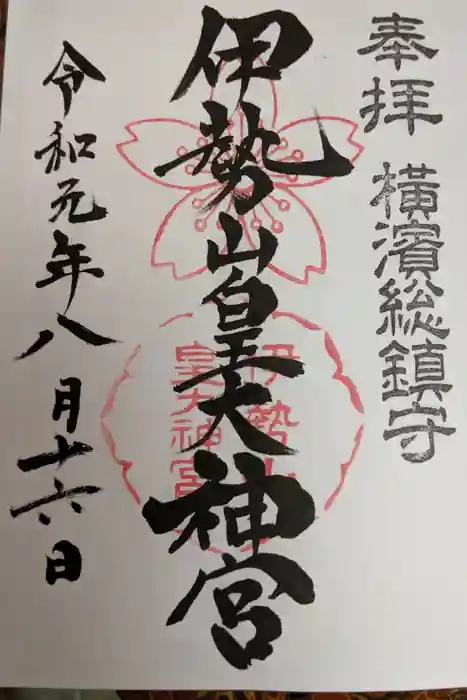 奉拝 横濱総鎮守
伊勢山皇大神宮
伊勢山
皇大神宮
令和元年八月十六日